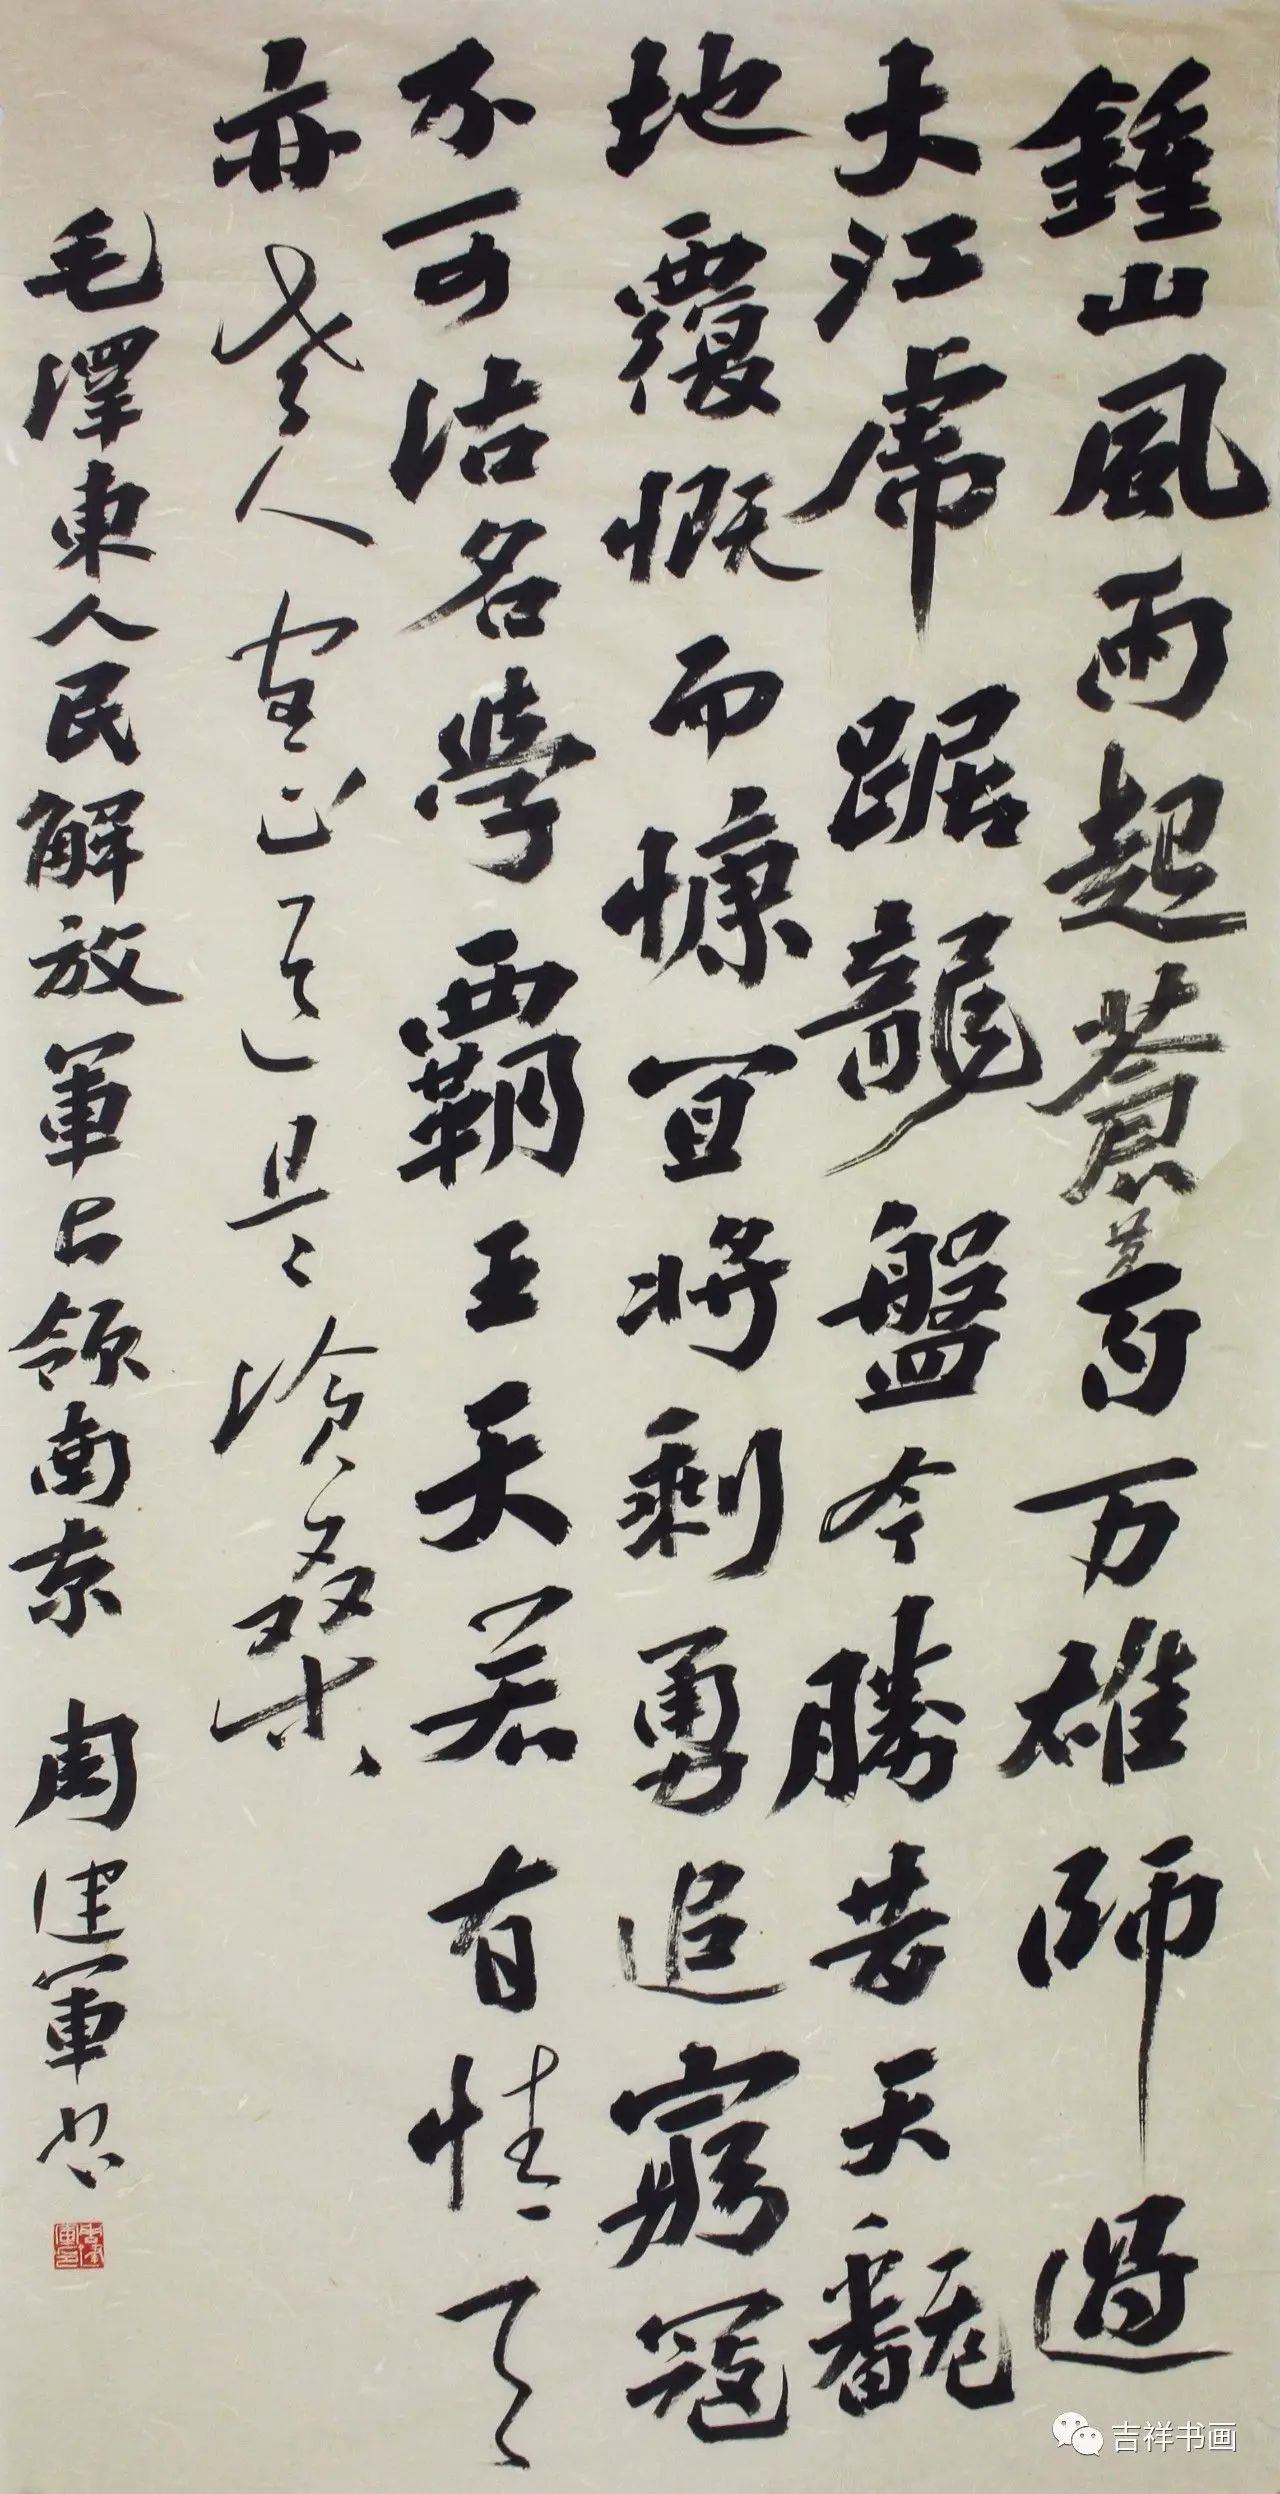 鍾山風雨起蒼黃百万雄師過
大江虎踞龍盤今勝昔天飜
地覆慨而慷宜將剩勇追窮寇
不可沽名學霸王天若有情天
亦老人間正道是滄桑
毛澤東人民解放軍占領南京 周建軍书
吉祥书画